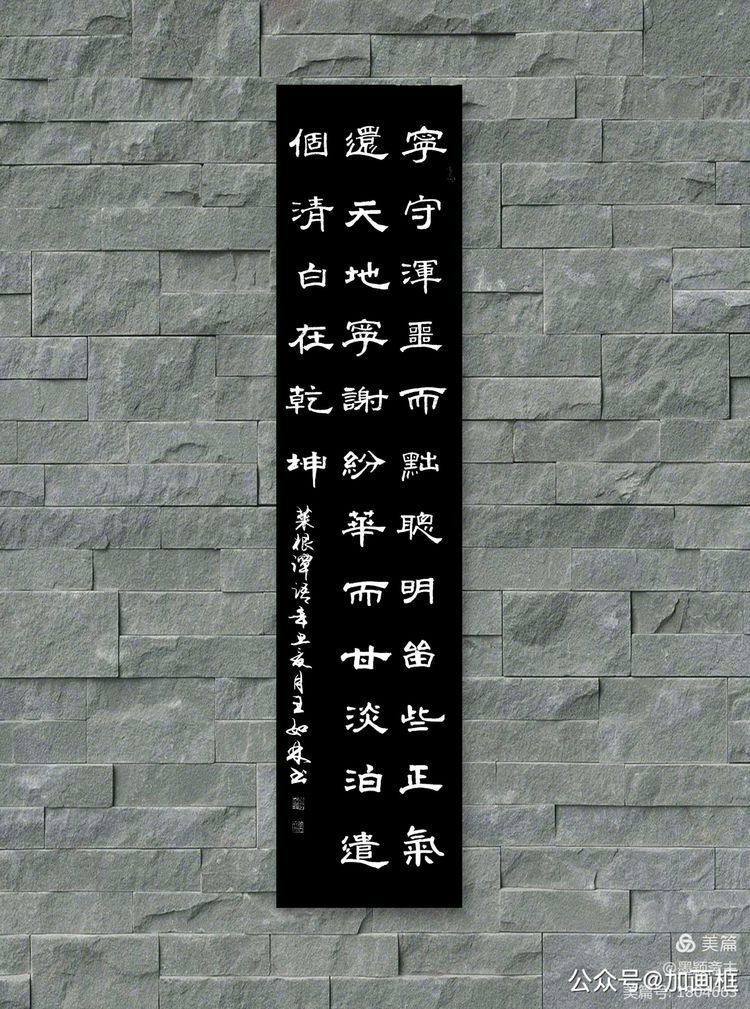 寧守渾噩而黜聰明留些正氣
還天地寧謝紛華而甘淡泊遣
個清白在乾坤
菜根譚語辛丑夏月王如林书
美篇
公众号@加画框